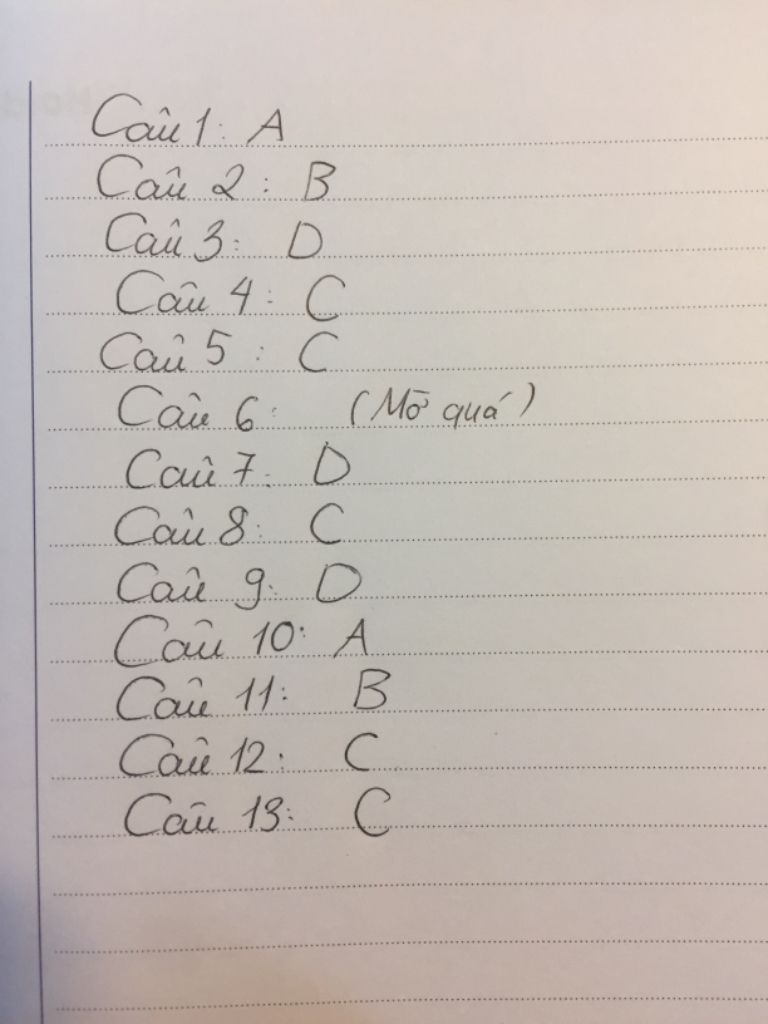 Câu 1: A
Câu 2: B
Câu 3: D
Câu 4: C
Câu 5: C
Câu 6: (Mờ quá)
Câu 7: D
Câu 8: C
Câu 9: D
Câu 10: A
Câu 11: B
Câu 12: C
Câu 13: C